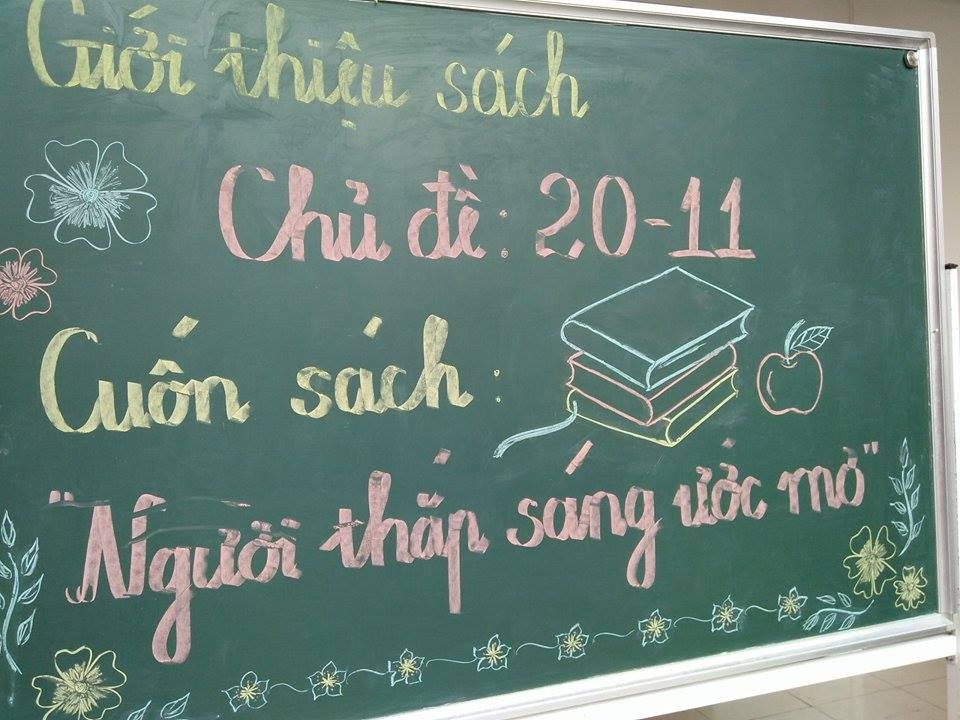 Giới thiệu sách
Chủ đề: 20-11
Cuốn sách:
"Người thắp sáng ước mơ"